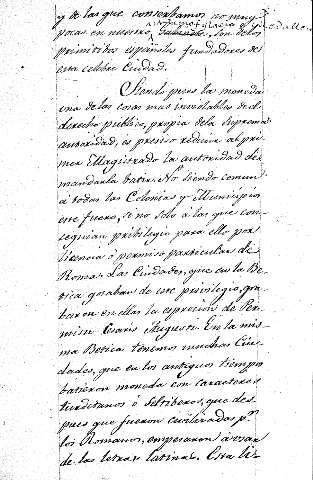 y de las que conservamos no muy
pocas en nuestro Gabinete, son de los
primitivos españoles fundadores de
esta celebre Ciudad.
Siendo pues la moneda
una de las cosas mas inviolables del
derecho publico, propia de la Suprema
autoridad, es preciso reducir al pri-
mer Magistrado la autoridad de
mandarla batir. No siendo comun
á todas las Colonias y Municipios
este fuero, si no solo á las que con-
seguian pribilegio para ello por
licencia ó permiso particular de
Roma. Las Ciudades, que en la Be-
tica gozaban de este privilegio, gra-
baron en ellas la espresion de Per-
missu Cesaris Augusti. En la mis-
ma Betica tenemos muchas Ciu-
dades, que en los antiguos tiempos
batieron moneda con caracteres
turdetanos ó Seltiberos, que des-
pues que fueron civilizadas pr.
los Romanos, empezaron a usar
de las letras latinas. Esta li-